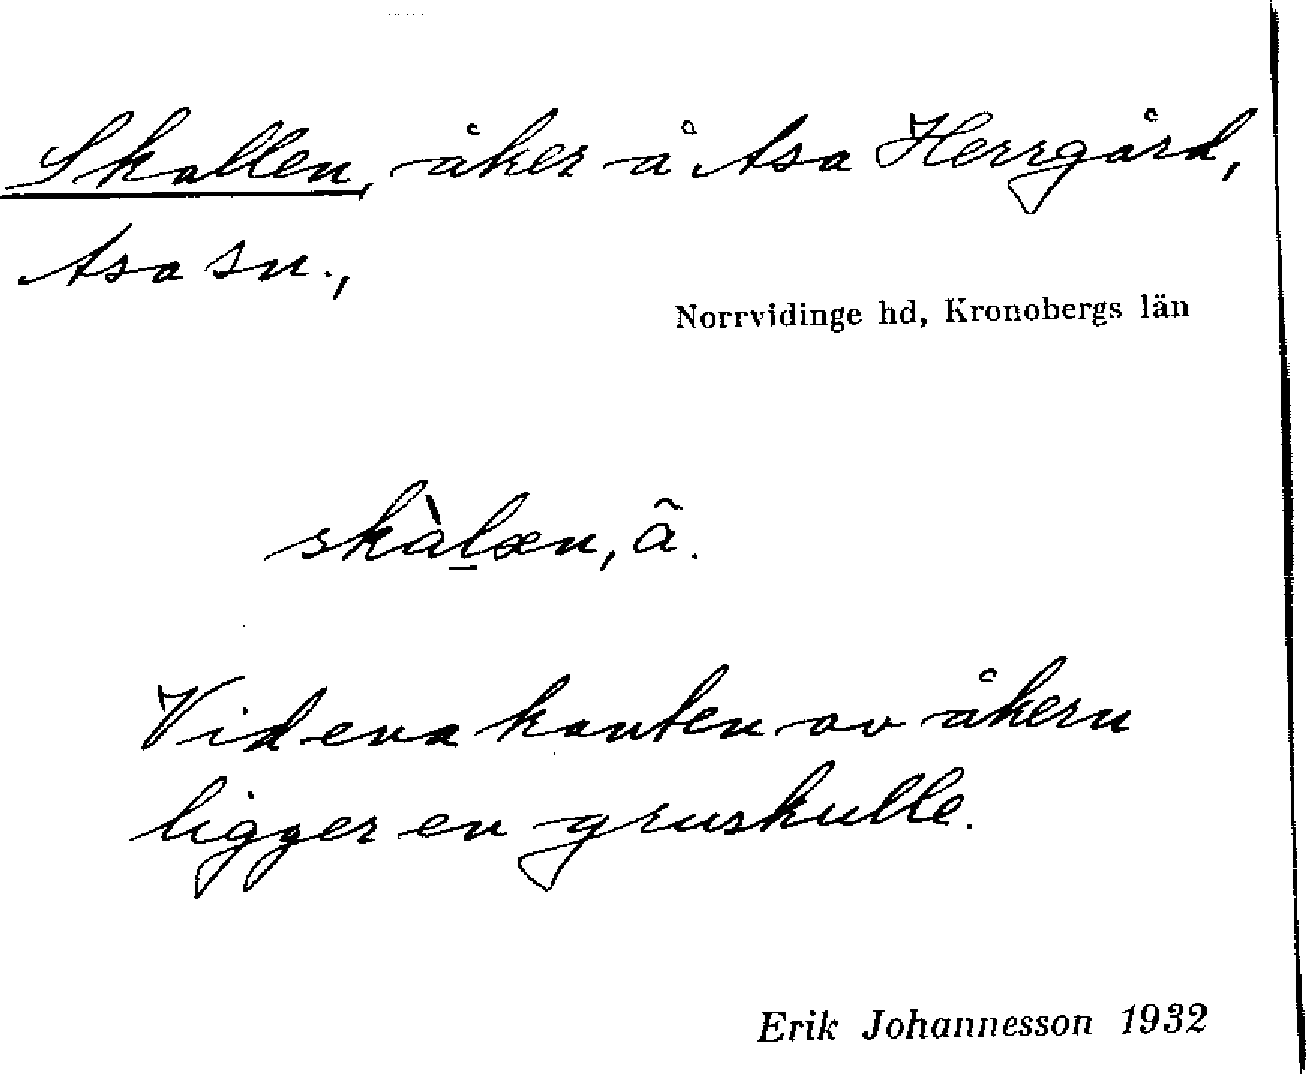 Skallen, åker å Asa Herrgård,
Asa sn.,
Norrvidinge hd, Kronobergs län
skàl̠æn, ã.
Vid ena kanten av åkern
ligger en gruskulle.
Erik Johannesson 1932